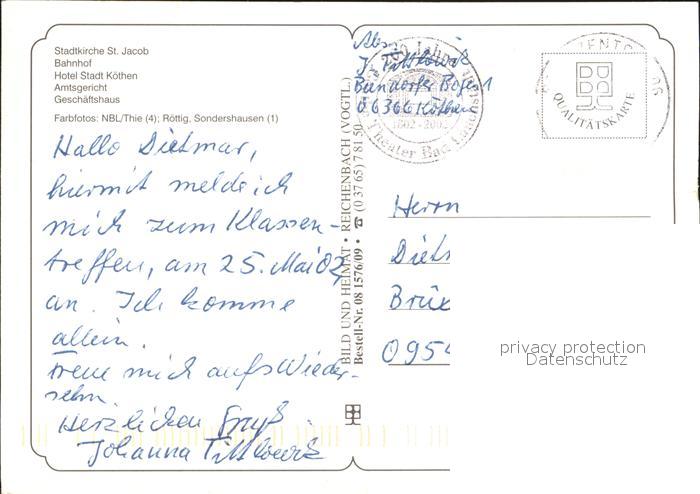 Stadtkirche St. Jacob
Bahnhof
Hotel Stadt Köthen
Amtsgericht
Geschäftshaus
Farbfotos: NBL/Thie (4); Röttig, Sondershausen (1)
Hallo Dietmar,
hiermit melde ich
mich zum Klassen-
treffen, am 25. Mai 02,
an. Ich komme
allein.
Freue mich aufs Wieder-
sehn.
Herzlichen Gruß
Johanna
BILD UND HEIMAT • REICHENBACH (VOGTL.)
Bestell-Nr. 08 1576/09 • ☎ (0 37 65) 7 81 50
Abs.
J.
06366 Köthen
Jahre
1802-2002
Theater Bad Lauchstädt
QUALITÄTSKARTE
Herrn
Diet
Brü
095
privacy protection
Datenschutz